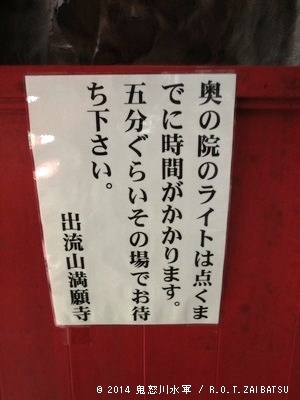 奥の院のライトは点くま
でに時間がかかります。
五分ぐらいその場でお待
ち下さい。
出流山満願寺
© 2014 鬼怒川水軍 / R.O.T.ZAIBATSU